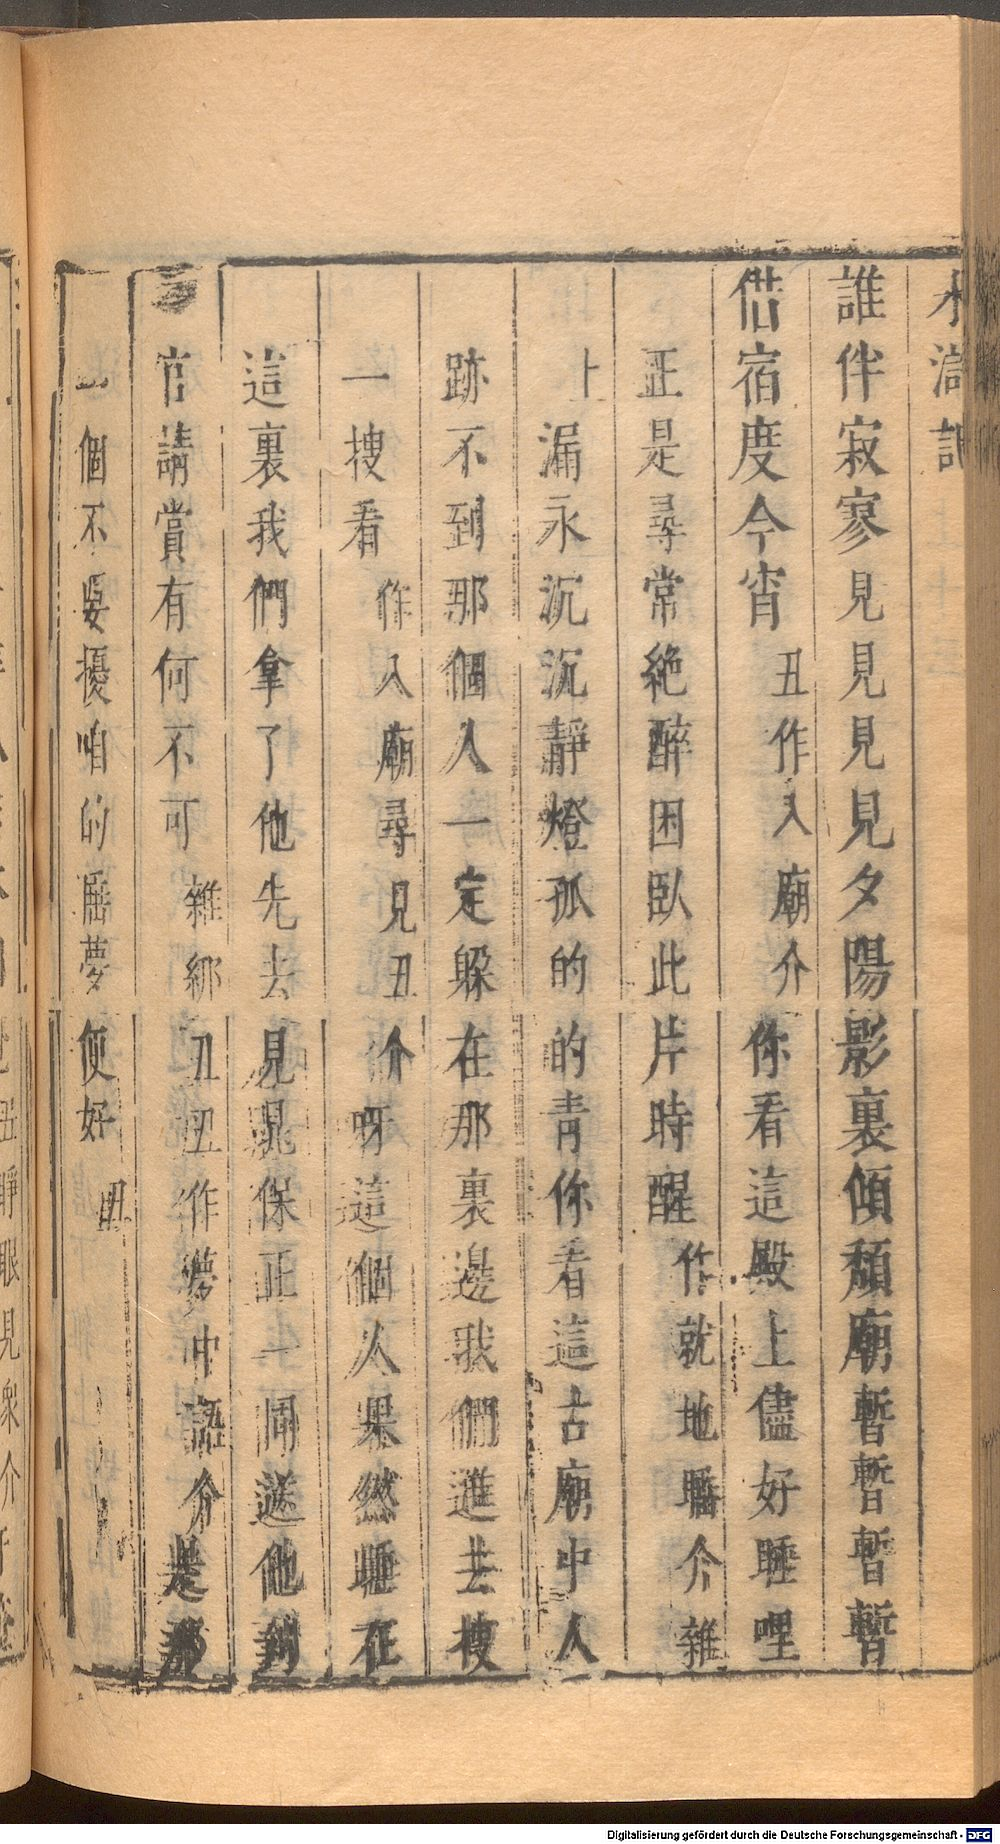 水滸記
誰伴寂寥見見見見夕陽影裏傾頽廟暫暫暫暫
借宿度今宵丑作入廟介你看這殿上儘好睡哩
正是尋常絶醉困臥此片時醒作就地睡介雜
上漏永沉沉靜燈孤的的青你看這古廟中人
跡不到那個人一定躱在那裏邊我們進去搜
一搜看作入廟尋見丑介呀這個人果然睡在
這裏我們拿了他先去見晁保正一同送他到
官請賞有何不可雜綁丑丑作夢中語介是那
一個不要擾咱的好夢便好丑
Digitalisierung gefördert durch die Deutsche Forschungsgemeinschaft - DFG